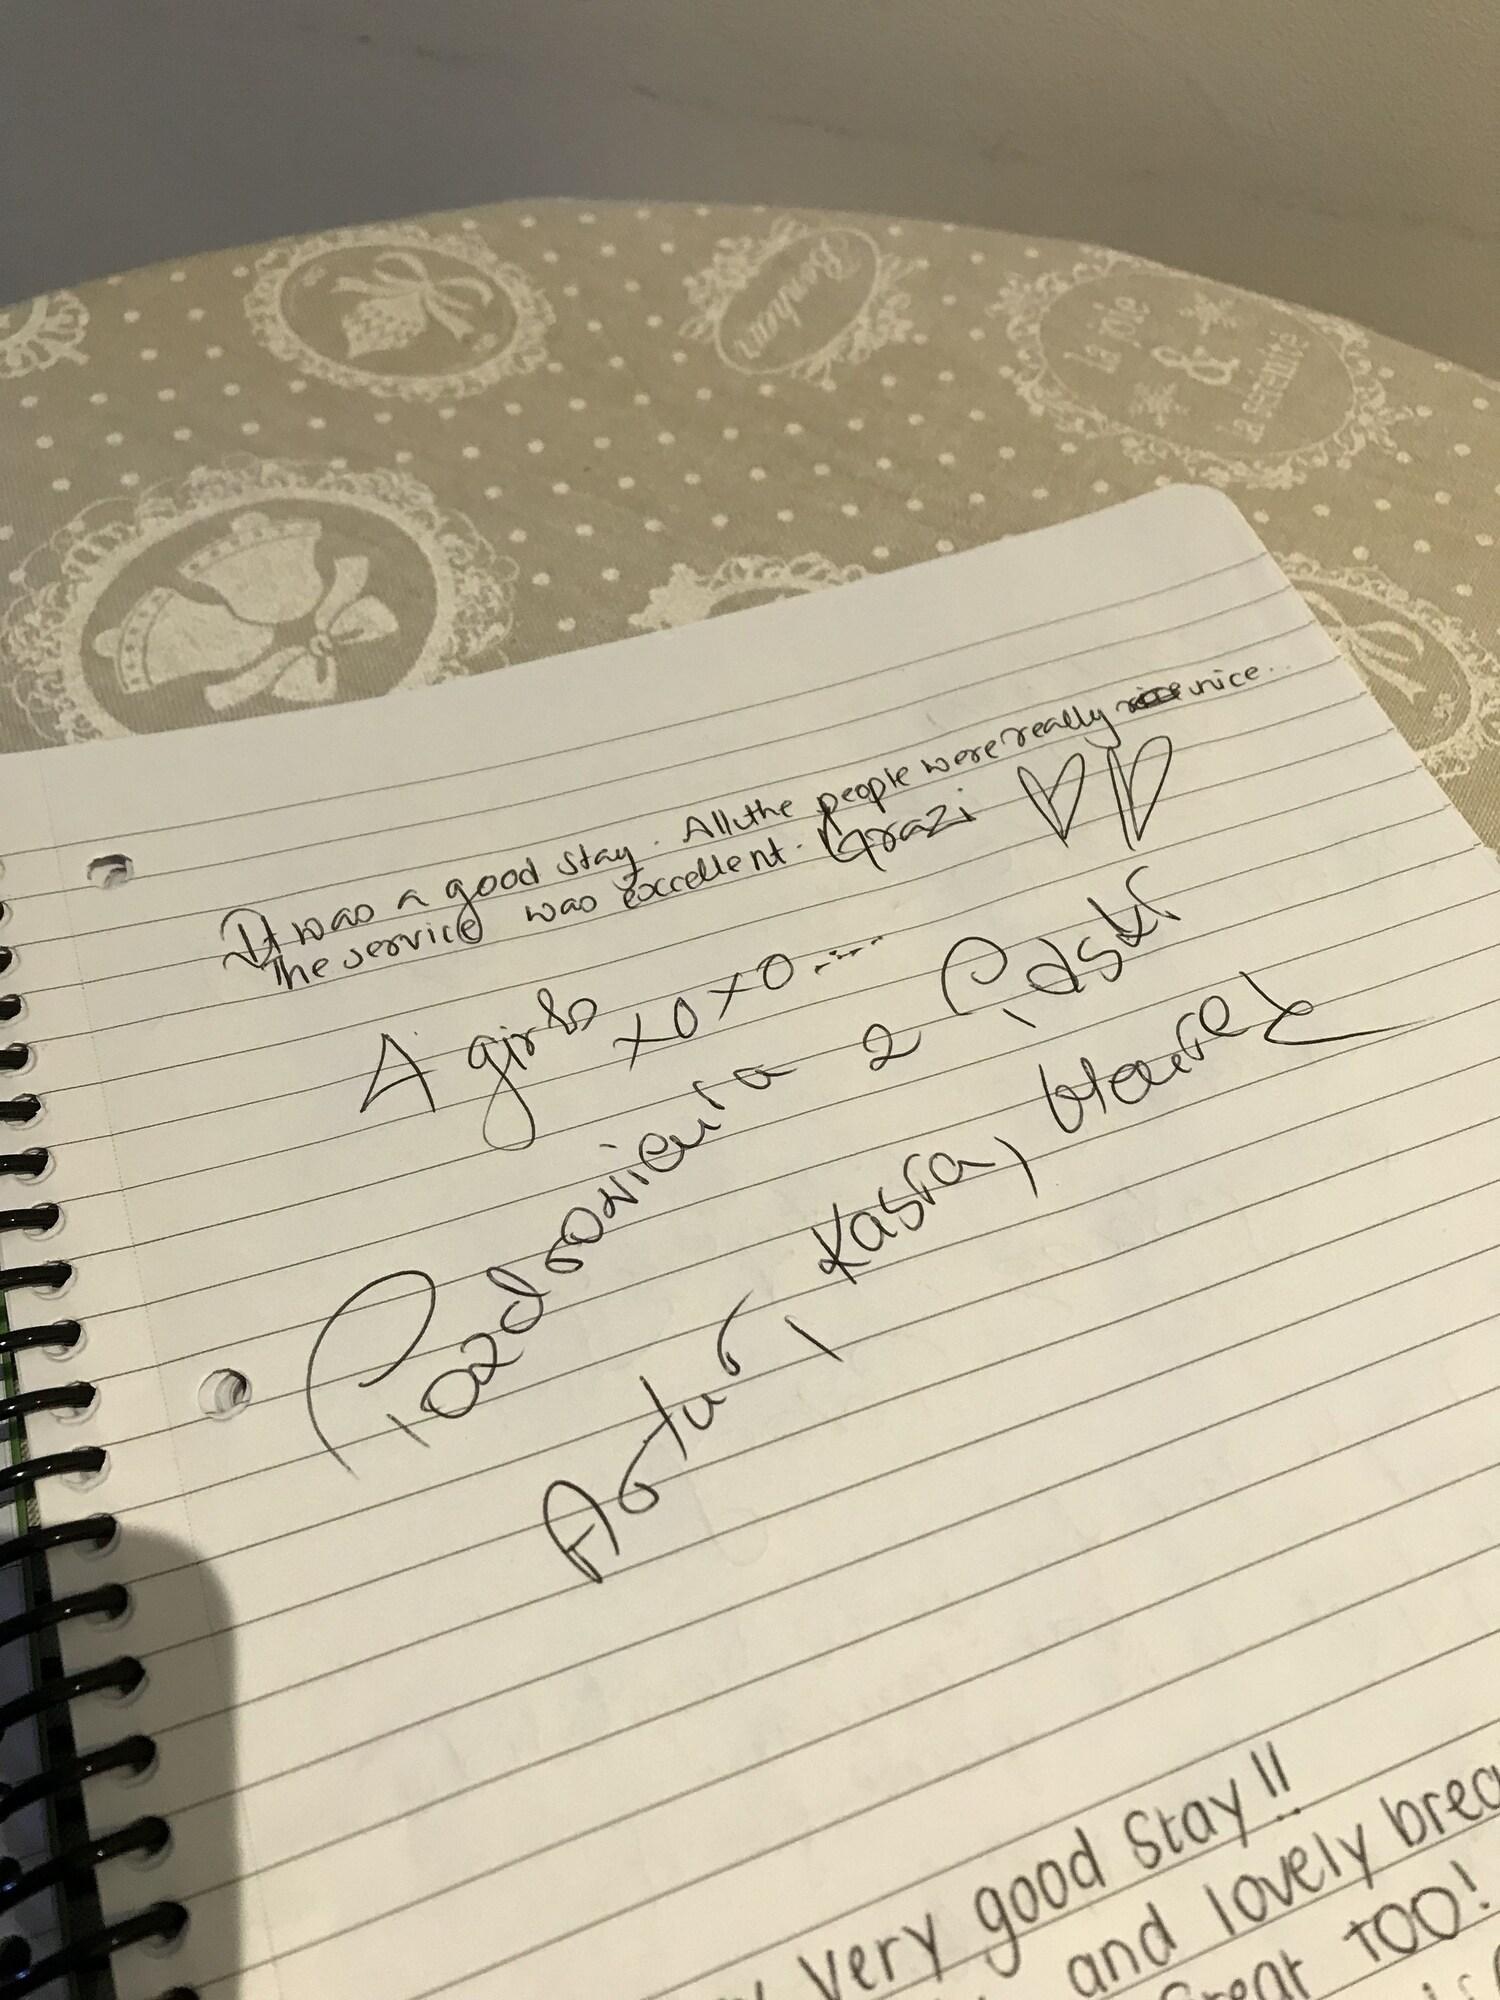 Bonheur
la joie
&
la sérénité
It was a good stay. All the people were really nice..
The service was excellent. Grazi
A girls
xoxo.....
Pozdrowienia z Polski
Artur, Kasra,
Very good Stay!!
and lovely brea
Great TOO!